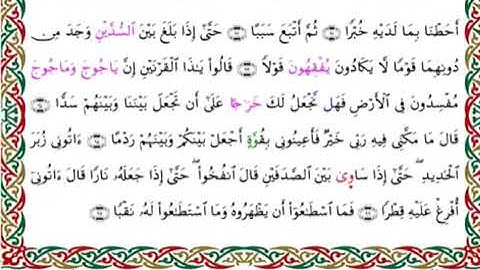 أَحَطْنَا بِمَا لَدَيْهِ خُبْرًا ثُمَّ أَتْبَعَ سَبَبًا حَتَّىٰ إِذَا بَلَغَ بَيْنَ ٱلسُّدَّيْنِ وَجَدَ مِن
دُونِهِمَا قَوْمًا لَّا يَكَادُونَ يُفْقِهُونَ قَوْلًا قَالُوا۟ يَٰذَا ٱلْقَرْنَيْنِ إِنَّ يَاجُوجَ وَمَاجُوجَ
مُفْسِدُونَ فِى ٱلْأَرْضِ فَهَل نَّجْعَلُ لَكَ خَرَٰجًا عَلَىٰٓ أَن تَجْعَلَ بَيْنَنَا وَبَيْنَهُمْ سَدًّا
قَالَ مَا مَكَّنِّى فِيهِ رَبِّى خَيْرٌ فَأَعِينُونِى بِقُوَّةٍ أَجْعَلْ بَيْنَكُمْ وَبَيْنَهُمْ رَدْمًا ءَاتُونِى زُبَرَ
ٱلْحَدِيدِ حَتَّىٰٓ إِذَا سَاوَىٰ بَيْنَ ٱلصَّدَفَيْنِ قَالَ ٱنفُخُوا۟ حَتَّىٰٓ إِذَا جَعَلَهُۥ نَارًا قَالَ ءَاتُونِىٓ
أُفْرِغْ عَلَيْهِ قِطْرًا فَمَا ٱسْطَٰعُوٓا۟ أَن يَظْهَرُوهُ وَمَا ٱسْتَطَٰعُوا۟ لَهُۥ نَقْبًا